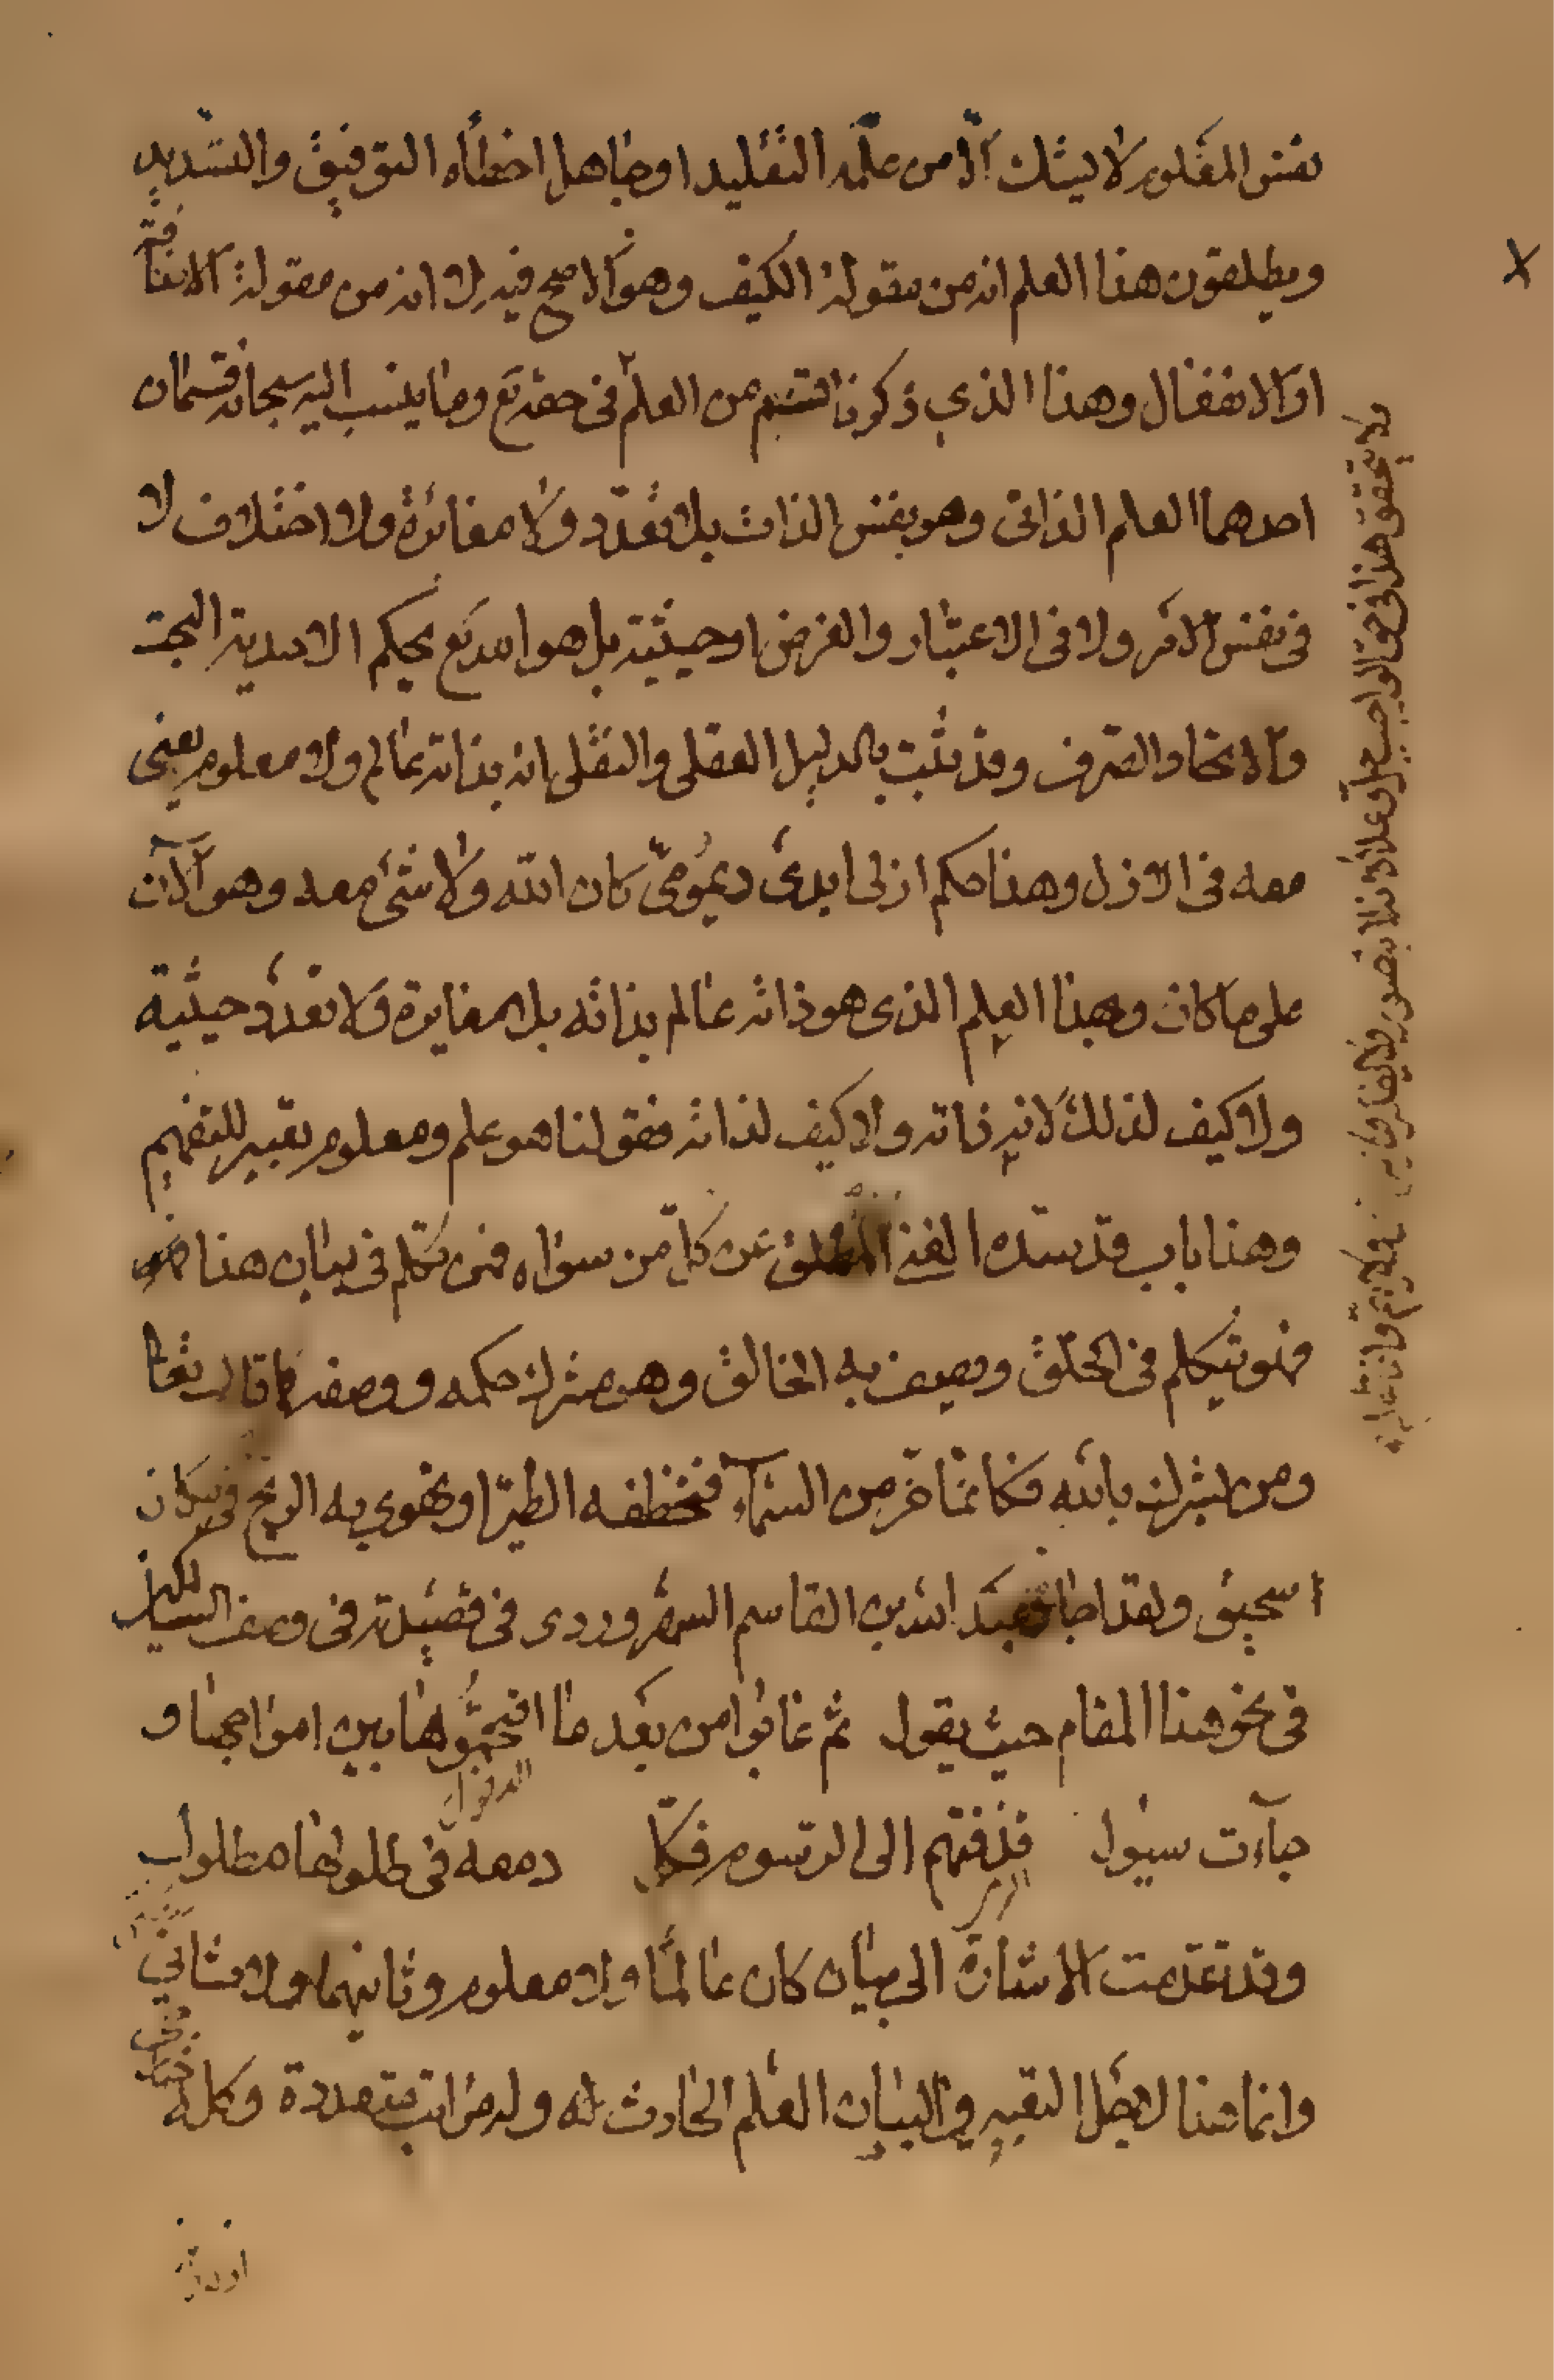 نفس المعلوم لا يشك الا من علمه التقليد او جاهل اخطأه التوفيق والتسديد
ويطلقون هذا العلم انه من مقولة الكيف وهو الاصح فيه لا انه من مقولة الاضافة
او الانفعال وهذا الذي ذكرنا قسم من العلم في حقه تع وما ينسب اليه سبحانه قسمان
احدهما العلم الذاتى وهو نفس الذات بلا تعدد ولا مغائرة ولا اختلاف لا
فى نفس الامر ولا فى الاعتبار والفرض او حيثية بل هو الله تع بحكم الاحدية البحت
والاتحاد الصرف وقد ثبت بالدليل العقلى والنقلى انه بذاته عالم ولا معلوم يعنى
معه فى الازل وهذا حكم ازلى ابدى ديمومى كان الله ولا شئ معه وهو الآن
على ما كان وبهذا العلم الذى هو ذاته عالم بذاته بلا مغايرة ولا تعدد حيثية
ولا كيف لذلك لانه ذاته ولا كيف لذاته فقولنا هو علم ومعلوم تعبير للتفهيم
وهذا باب قد سده الغنى المطلق عن كل من سواه فمن تكلم فى بيان هذا
فهو يتكلم فى الخلق ويصف به الخالق وهو مشرك حكمه ووصفه كما قال تعا
ومن يشرك بالله فكانما خر من السماء فتخطفه الطير او تهوى به الريح فى مكان
سحيق ولقد اجاد عبد الله بن القاسم السهروردى فى قصيدته فى وصف السالكين
فى نحو هذا المقام حيث يقول ثم غابوا من بعد ما اقتحموها بين امواجها و
جاءت سيول قذفتهم الى الرسوم فكل دمعه فى طلولها مطلول
وقد تقدمت الاشارة الى بيان كان عالما ولا معلوم وثانيهما ولا ثانى
وانما هذا لاجل التعبير والبيان العلم الحادث له وله مراتب متعددة وكله